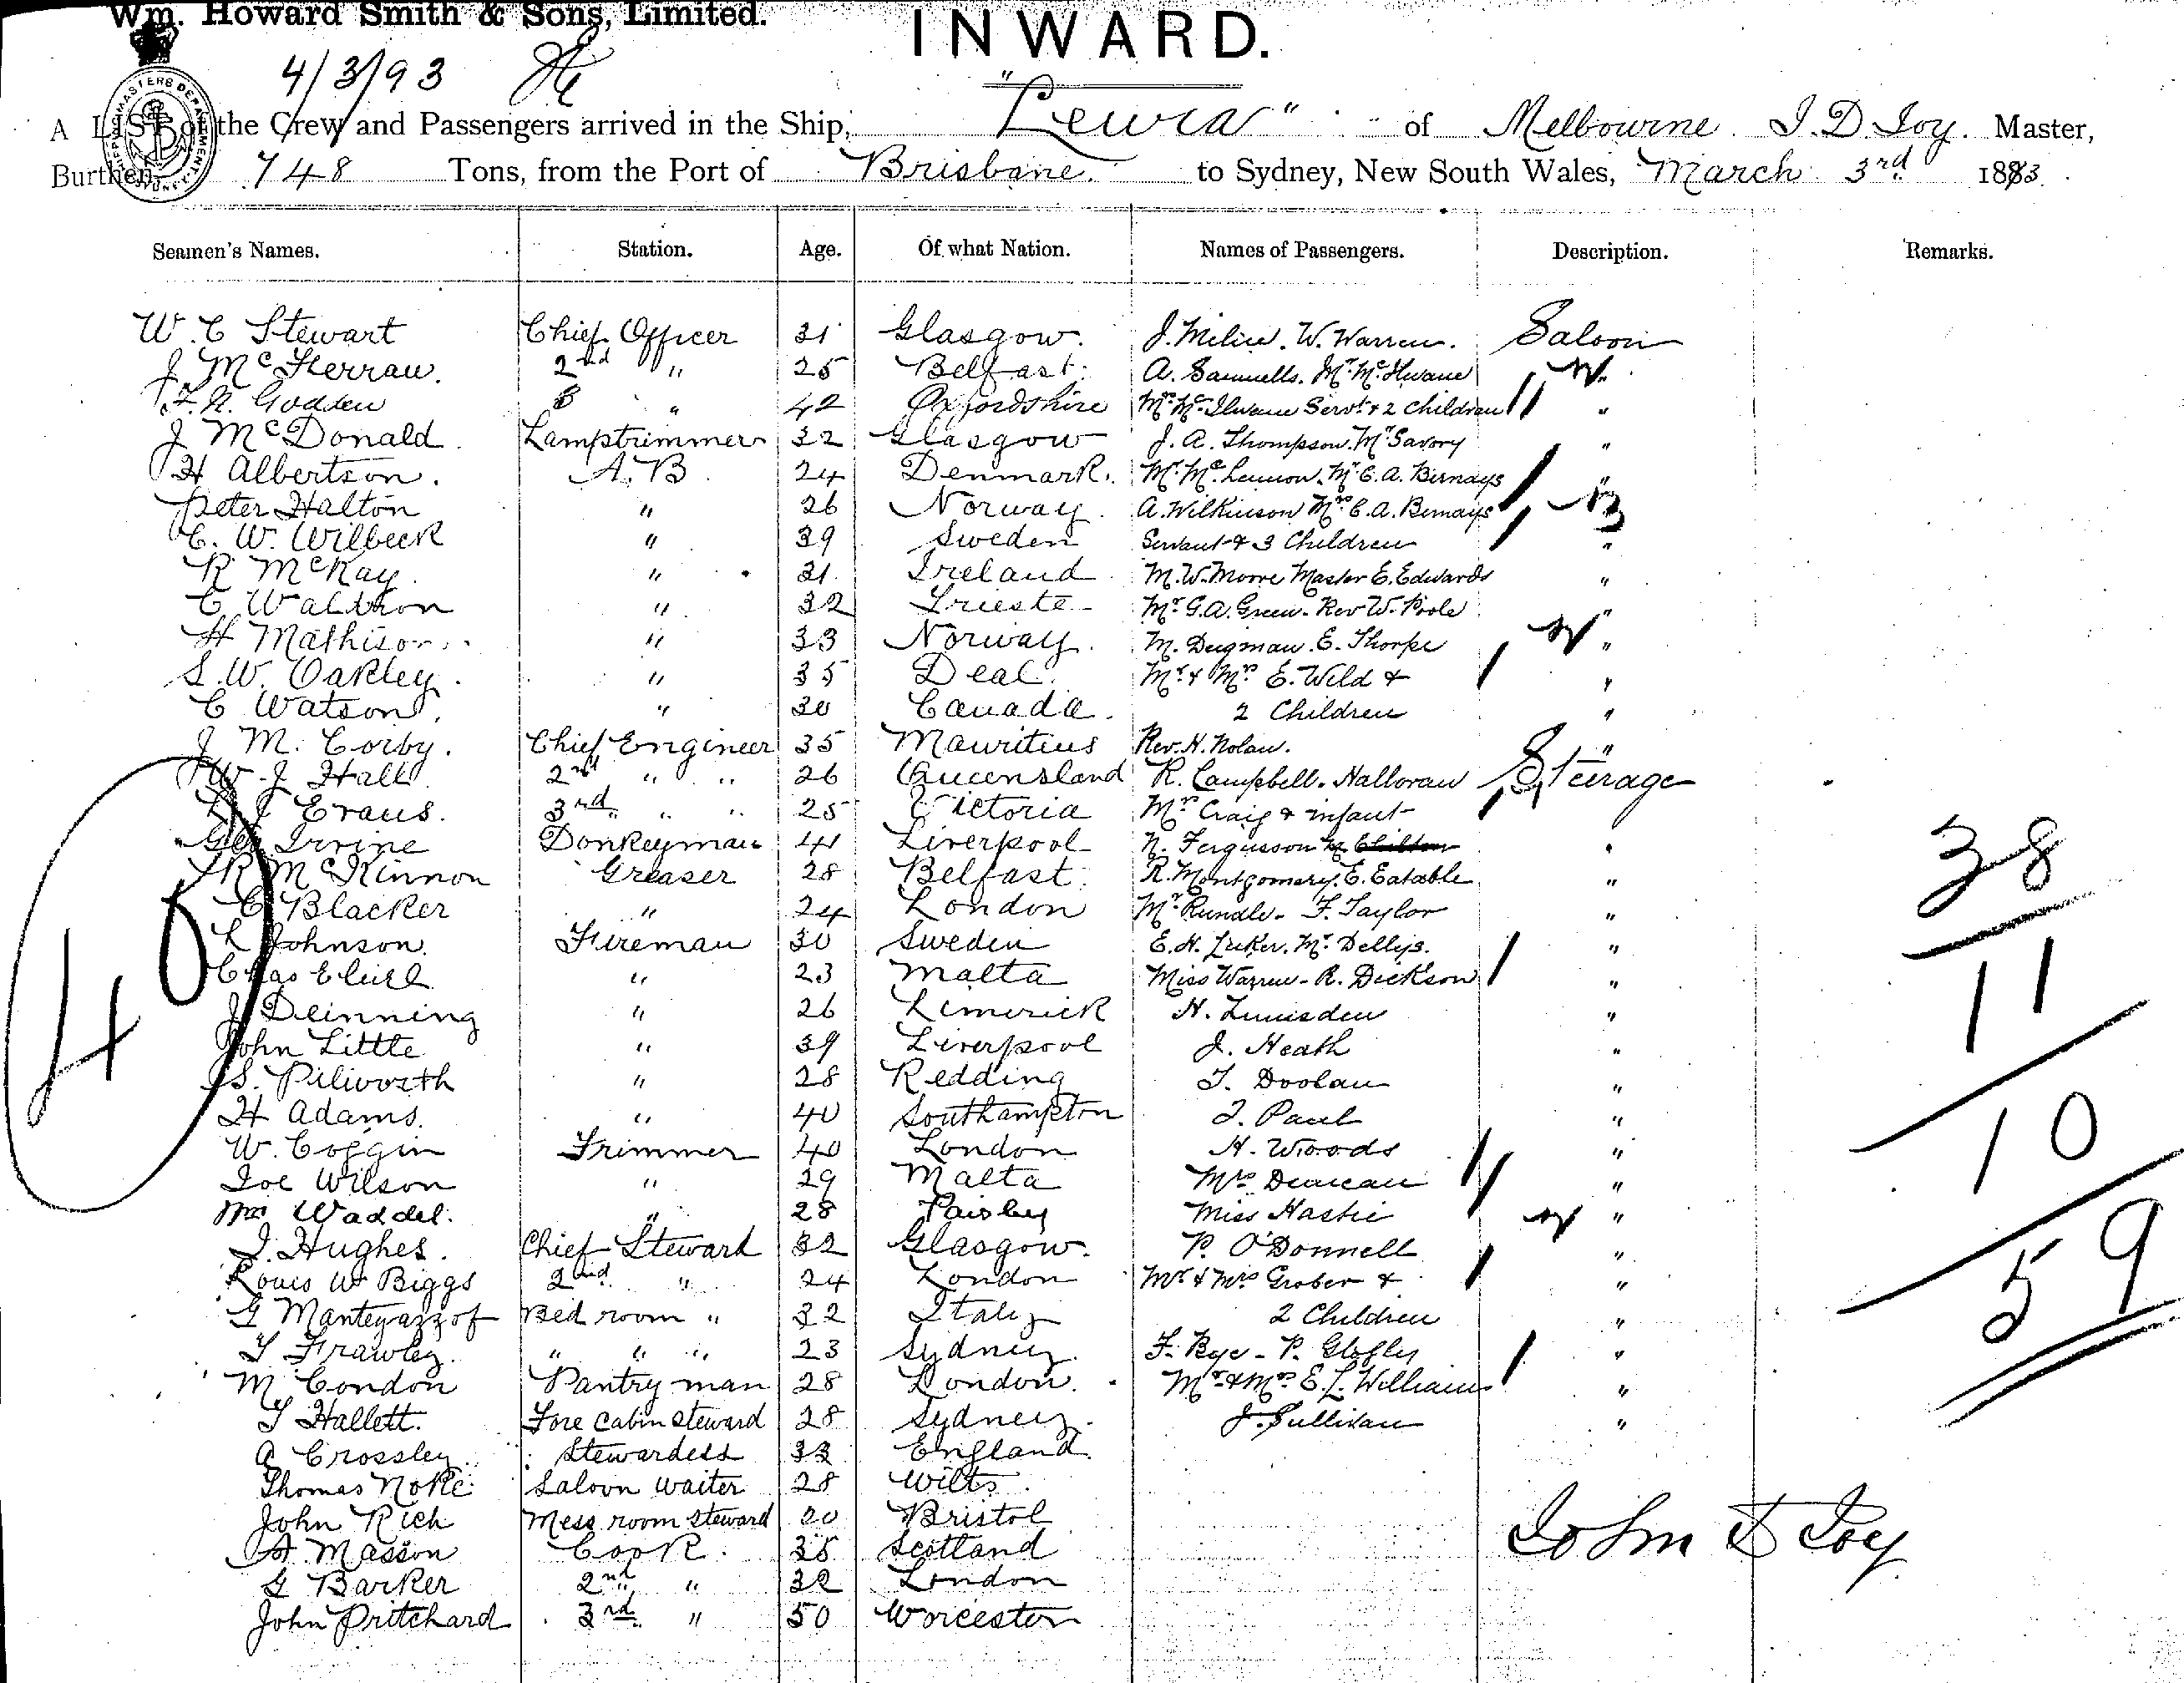 Wm. Howard Smith & Sons, Limited.
INWARD.
4/3/93
A LIST of the Crew and Passengers arrived in the Ship, "Leura" of Melbourne J. D. Joy. Master,
Burthen 748 Tons, from the Port of Brisbane. to Sydney, New South Wales, March 3rd 1893.
Seamen's Names. Station. Age. Of what Nation. Names of Passengers. Description. Remarks.
W. C Stewart Chief Officer 31 Glasgow. W. Warren. Saloon
J McFerran. 2nd " 25 Belfast. A. Samuells. Mr. McIlwane
F. N. Godden 3 " 42 Oxfordshire Mrs. McIlwane Servt. & 2 Children "
J McDonald Lamptrimmer 32 Glasgow J. A. Thompson. Mr Savory "
H Albertson. A.B 24 Denmark. Mr. McLennon. Mr. C. A. Bernays "
Peter Halton " 26 Norway. A. Wilkinson Mrs. C. A. Bernays
C. W. Wilbeck " 39 Sweden Servant & 3 Children "
R McKay. " 31. Ireland M. W. Moore Master E. Edwards "
C Waldron " 32 Trieste Mr. G. A. Green. Rev W. Poole "
H Mathison " 33 Norway. M. Dugman. E. Thorpe "
S. W. Oakley. " 35 Deal. Mr. & Mrs. E. Wild & "
C Watson. " 30 Canada. 2 Children "
J M. Corby. Chief Engineer 35 Mauritius Rev. H. Nolan. "
W. J Hall 2nd " " 26 Queensland R. Campbell. Halloran Steerage
Evans. 3rd " " 25 Victoria Mrs Craig & infant
Geo Irvine Donkeyman 41 Liverpool N. Fergusson "
R McKinnon Greaser 28 Belfast. R. Montgomery. E. Eatable "
C Blacker " 24 London Mr. Rundle. F. Taylor "
Johnson. Fireman 30 Sweden E. H. Luker. Mr. Dellys. "
Chas " 23 Malta Miss Warren - R. Dickson "
J Deinning " 26 Limerick H. Lumsden "
John Little " 39 Liverpool J. Heath "
S. Pilworth " 28 Redding T. Doolan "
H Adams. " 40 Southampton J. Paul "
W. Coggin Trimmer 40 London H. Woods "
Joe Wilson " 29 Malta Mrs Duncan "
Wm Waddel. " 28 Paisley Miss Hastie "
J. Hughes. Chief Steward 32 Glasgow. P. O'Donnell "
Louis W Biggs 2nd " 24 London Mr & Mrs Grober & "
G Mantegazzof Bed room " 32 Italy 2 Children "
T Frawley. " " " 23 Sydney. F. Rye - P. "
M Condon Pantry man 28 London. Mr. & Mrs. E. L. Williams "
T Hallett. Fore Cabin steward 28 Sydney. J. Sullivan "
A Crossley. Stewardess 33 England.
Thomas Noke Saloon Waiter 28 Wilts.
John Rich Mess room steward 20 Bristol
A. Masson Cook. 35 Scotland
G Barker 2nd " 32 London
John Pritchard 3rd " 50 Worcester
40
38
11
10
59
John D Joy